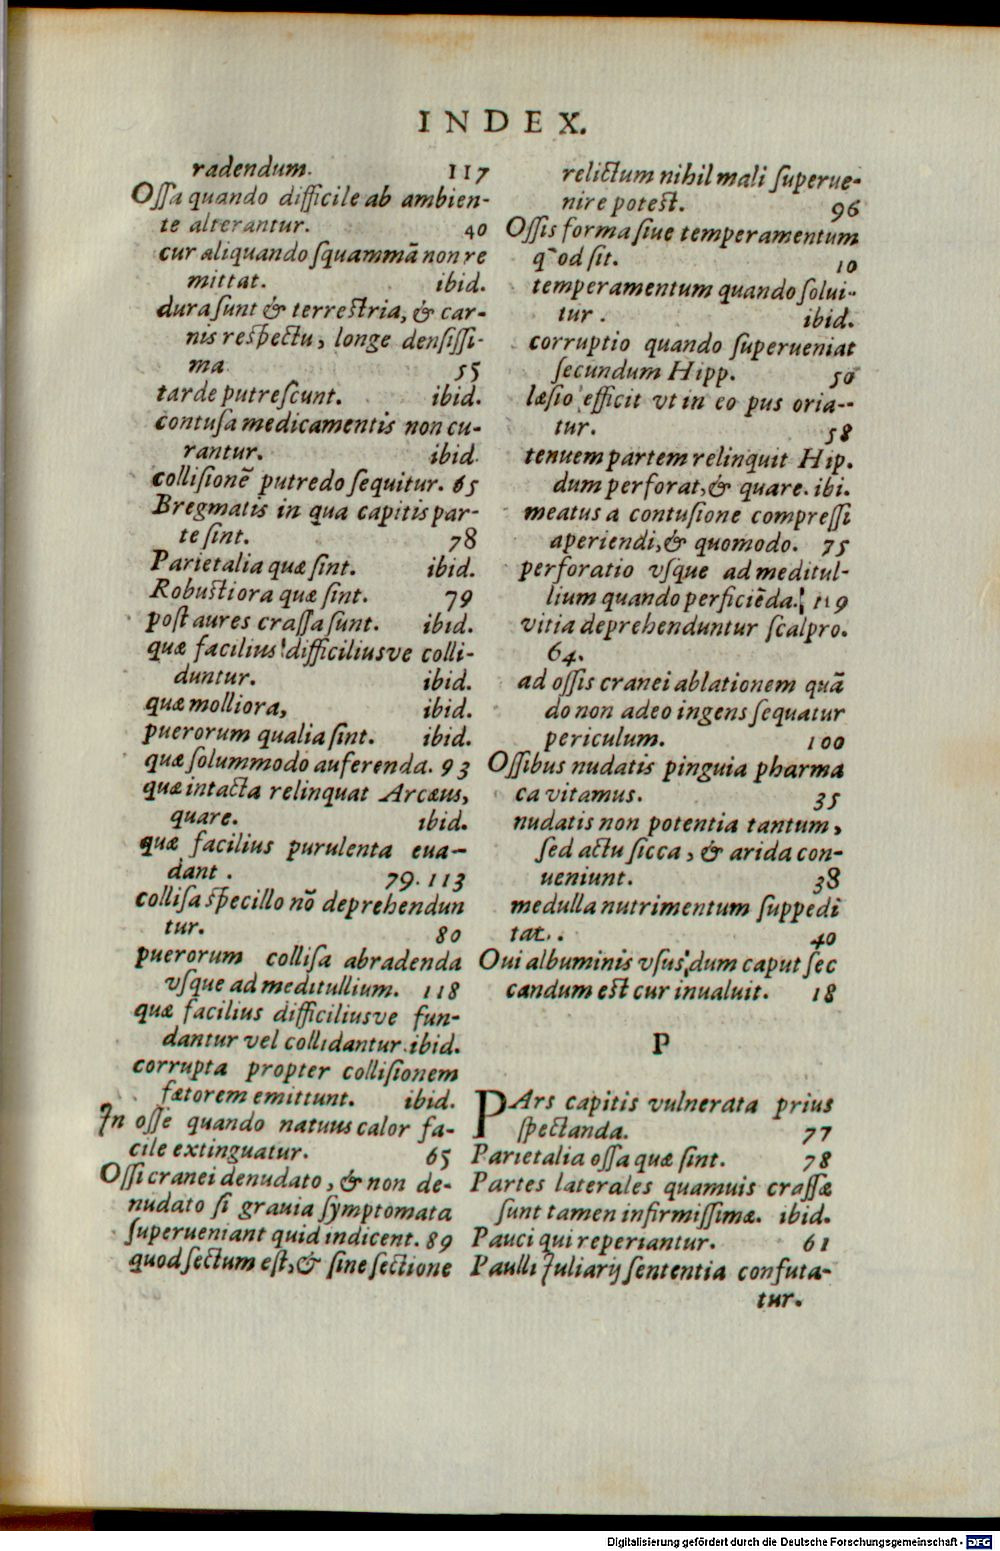 INDEX.
radendum. 117
Ossa quando difficile ab ambien-
te alterantur. 40
cur aliquando squammã non re
mittat. ibid.
dura sunt & terrestria, & car-
nis respectu, longe densissi-
ma 55
tarde putrescunt. ibid.
contusa medicamentis non cu-
rantur. ibid.
collisionẽ putredo sequitur. 65
Bregmatis in qua capitis par-
te sint. 78
Parietalia quæ sint. ibid.
Robustiora quæ sint. 79
post aures crassa sunt. ibid.
quæ facilius difficiliusve colli-
duntur. ibid.
quæ molliora, ibid.
puerorum qualia sint. ibid.
quæ solummodo auferenda. 93
quæ intacta relinquat Arcæus,
quare. ibid.
quæ facilius purulenta eua-
dant. 79. 113
collisa specillo nõ deprehendun
tur. 80
puerorum collisa abradenda
vsque ad meditullium. 118
quæ facilius difficiliusve fun-
dantur vel collidantur. ibid.
corrupta propter collisionem
fætorem emittunt. ibid.
In osse quando natuus calor fa-
cile extinguatur. 65
Ossi cranei denudato, & non de-
nudato si grauia symptomata
superueniant quid indicent. 89
quod sectum est, & sine sectione
relictum nihil mali superue-
nire potest. 96
Ossis forma siue temperamentum
q̃ od sit. 10
temperamentum quando solui-
tur. ibid.
corruptio quando superueniat
secundum Hipp. 50
læsio efficit vt in eo pus oria--
tur. 58
tenuem partem relinquit Hip.
dum perforat, & quare. ibi.
meatus a contusione compressi
aperiendi, & quomodo. 75
perforatio vsque ad meditul-
lium quando perficiẽda. 119
vitia deprehenduntur scalpro.
64.
ad ossis cranei ablationem quã
do non adeo ingens sequatur
periculum. 100
Ossibus nudatis pinguia pharma
ca vitamus. 35
nudatis non potentia tantum,
sed actu sicca, & arida con-
ueniunt. 38
medulla nutrimentum suppedi
tat. . 40
Oui albuminis vsus dum caput sec
candum est cur inualuit. 18
P
PArs capitis vulnerata prius
spectanda. 77
Parietalia ossa quæ sint. 78
Partes laterales quamuis crassæ
sunt tamen infirmissimæ. ibid.
Pauci qui reperiantur. 61
Paulli Juliarij sententia confuta-
tur.
Digitalisierung gefördert durch die Deutsche Forschungsgemeinschaft - DFG